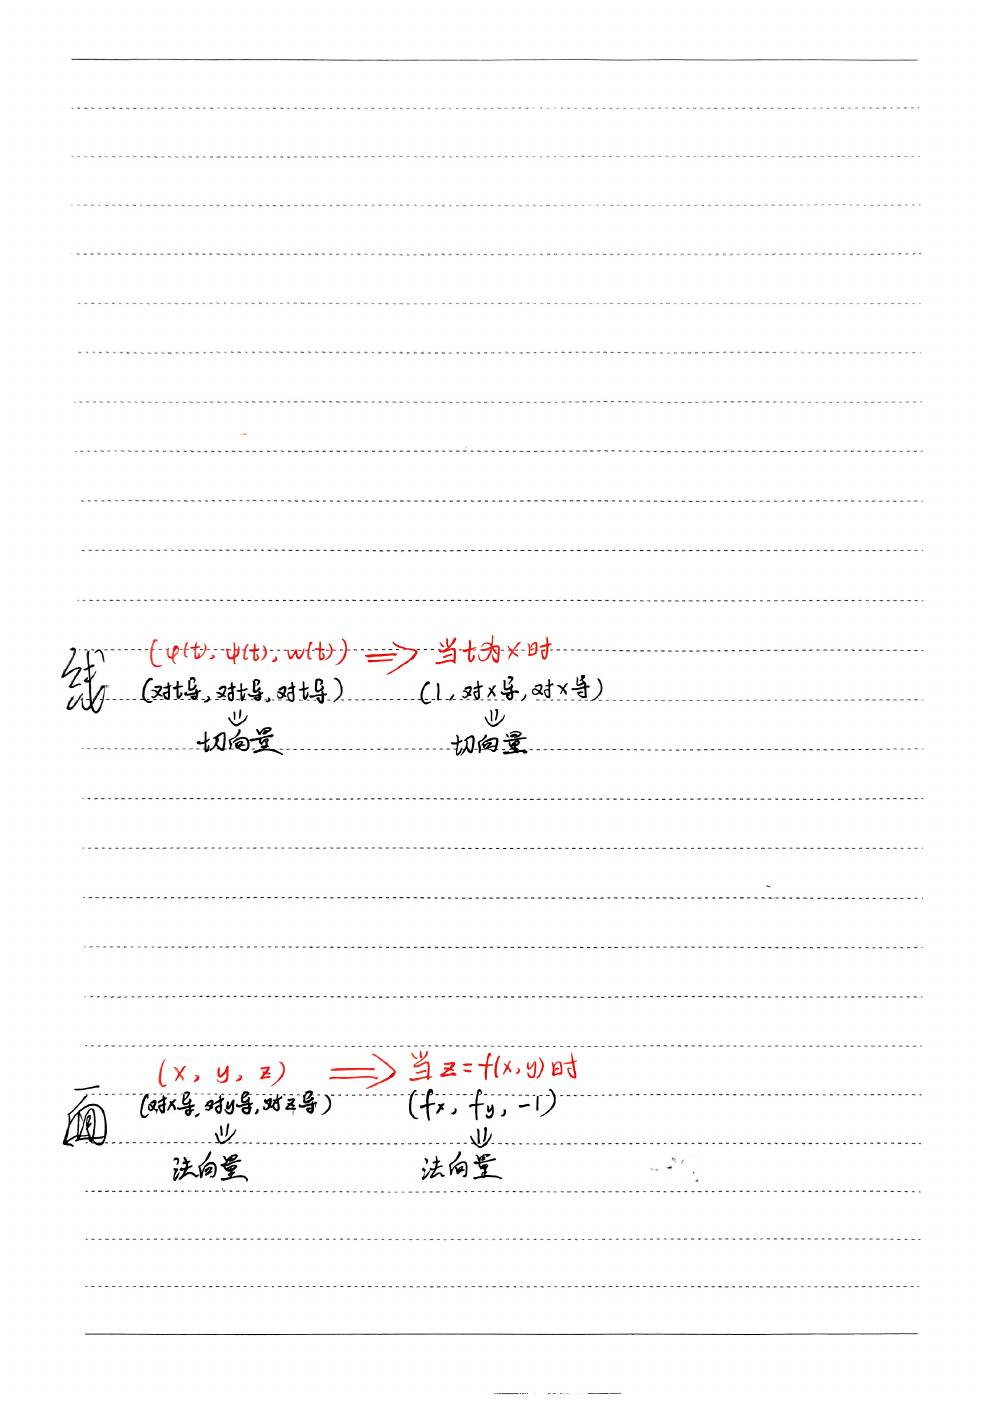 (φ(t), ψ(t), w(t)) ⇒ 当t为x时
线
(对t导, 对t导, 对t导) (1, 对x导, 对x导)
⇓ ⇓
切向量 切向量
(x, y, z) ⇒ 当z=f(x,y)时
面
(对x导, 对y导, 对z导) (fx, fy, -1)
⇓ ⇓
法向量 法向量